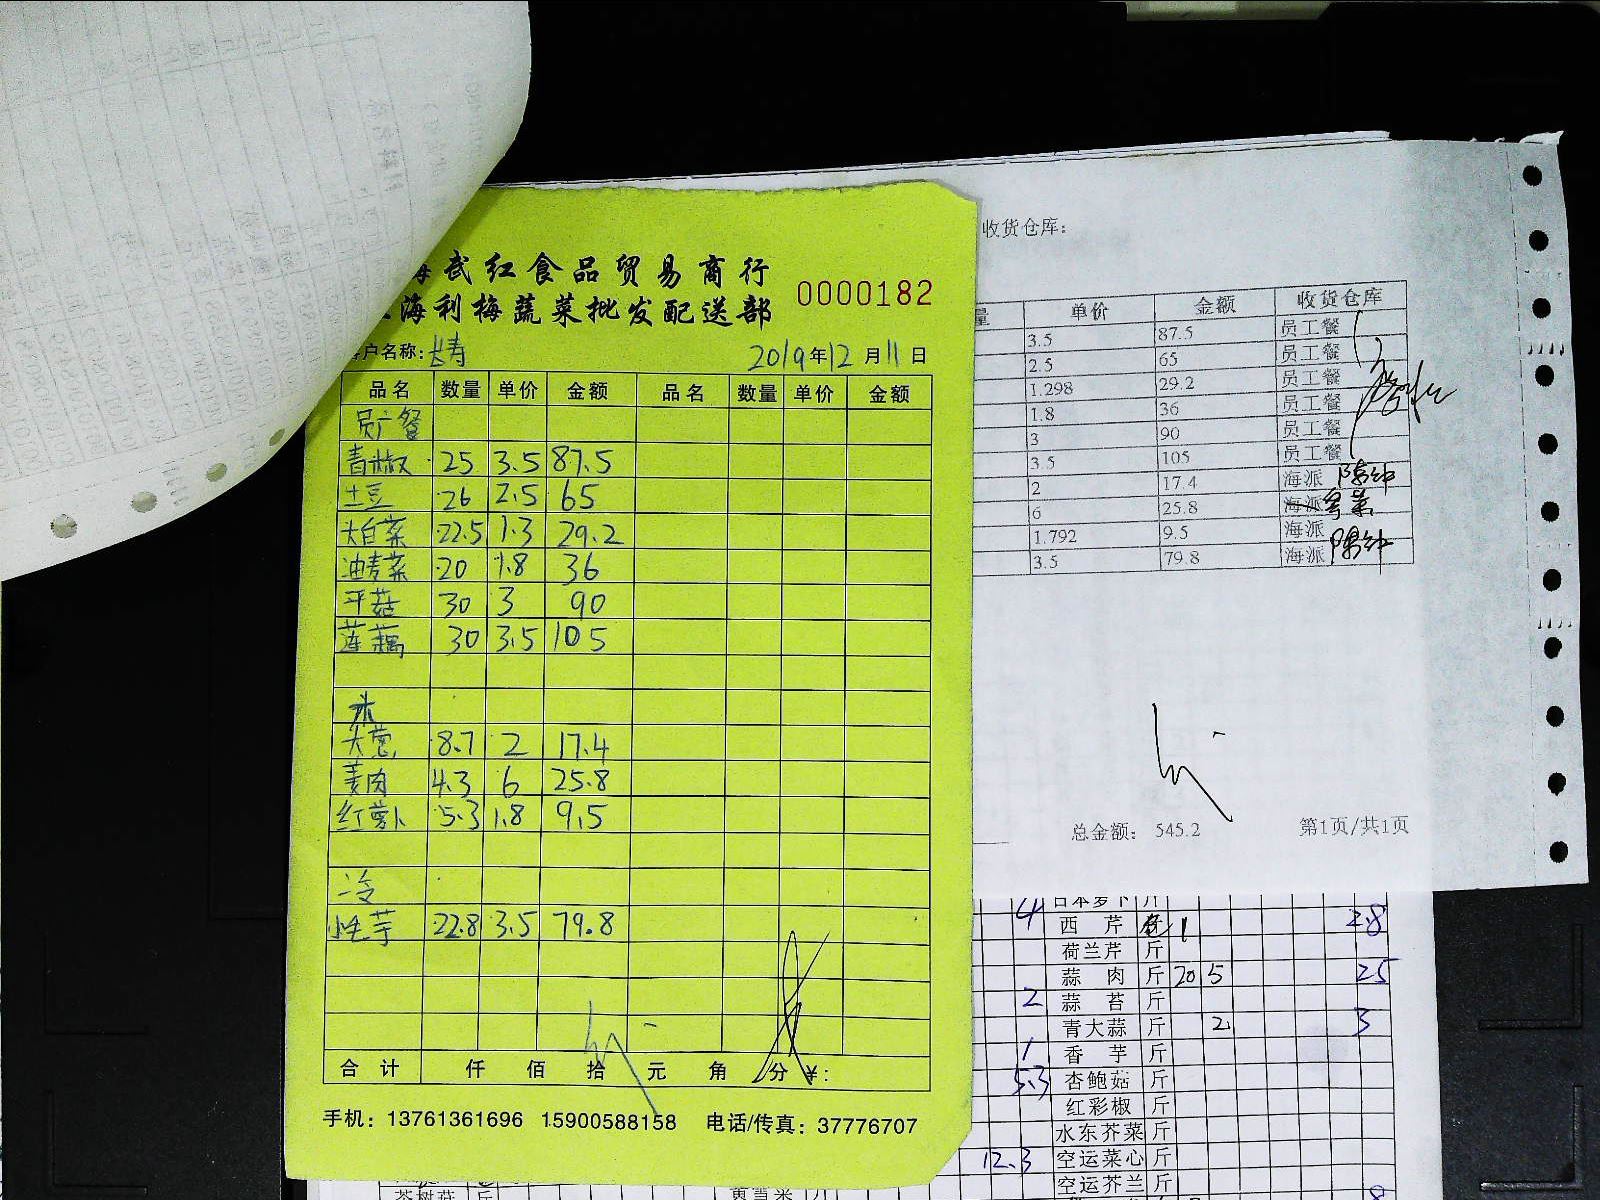 武红食品贸易商行
海利梅蔬菜批发配送部
0000182
户名称:长寿
2019年12月11日
品名 数量 单价 金额 品名 数量 单价 金额
员工餐
青椒 25 3.5 87.5
土豆 26 2.5 65
大白菜 22.5 1.3 29.2
油麦菜 20 1.8 36
平菇 30 3 90
莲藕 30 3.5 105
大葱 8.7 2 17.4
姜肉 4.3 6 25.8
红萝卜 5.3 1.8 9.5
冷
小毛芋 22.8 3.5 79.8
合计 仟 佰 拾 元 角 分 ¥:
手机: 13761361696 15900588158 电话/传真: 37776707
收货仓库:
单价 金额 收货仓库
3.5 87.5 员工餐
2.5 65 员工餐
1.298 29.2 员工餐
1.8 36 员工餐
3 90 员工餐
3.5 105 员工餐
2 17.4 海派
6 25.8 海派
1.792 9.5 海派
3.5 79.8 海派
总金额: 545.2 第1页/共1页
4 日本萝卜 斤
西芹 1 2.8
荷兰芹 斤
蒜肉 斤 20 5 25
2 蒜苔 斤
青大蒜 斤 2 3
1 香芋 斤
5.3 杏鲍菇 斤
红彩椒 斤
水东芥菜 斤
12.3 空运菜心 斤
空运芥兰 斤
茶树菇 斤 黄雪米 斤